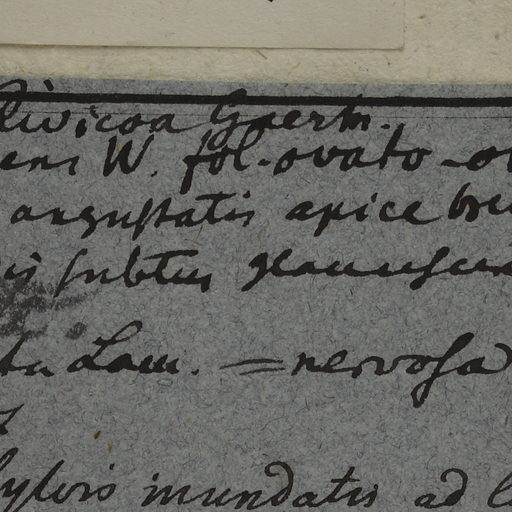 livicoa Gaertn.
ens W. fol. ovato-o
angustatis apice bre
is subtus glaucescen
ta Lam. = nervosa
sylvis inundatis ad l